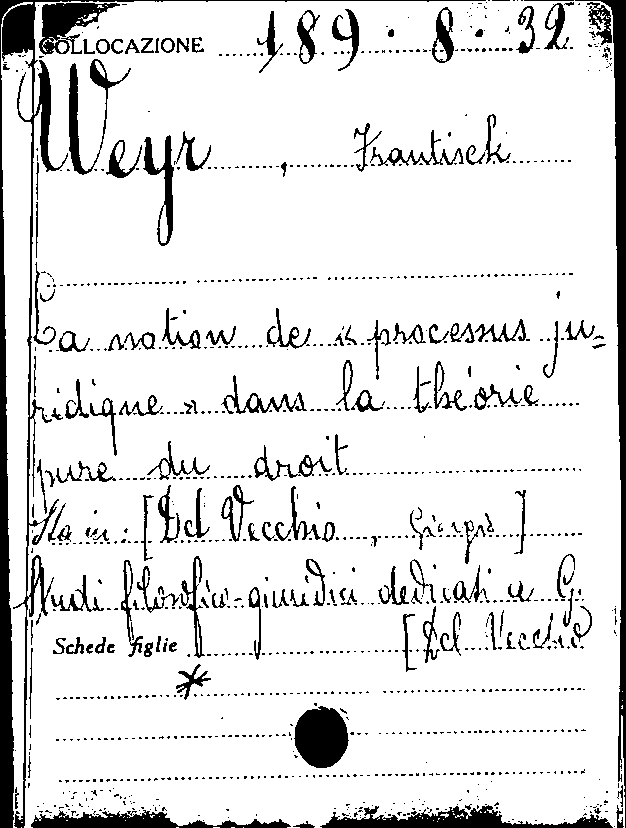 COLLOCAZIONE 189.8.32
Weyr, Frantisek
La notion de « processus ju=
ridique » dans la théorie
pure du droit
Sta in: [Del Vecchio, Giorgio]
Studi filosofico-giuridici dedicati a G.
Schede figlie [Del Vecchio
*